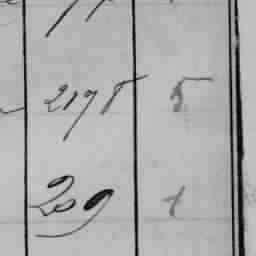 2178 5
209 1